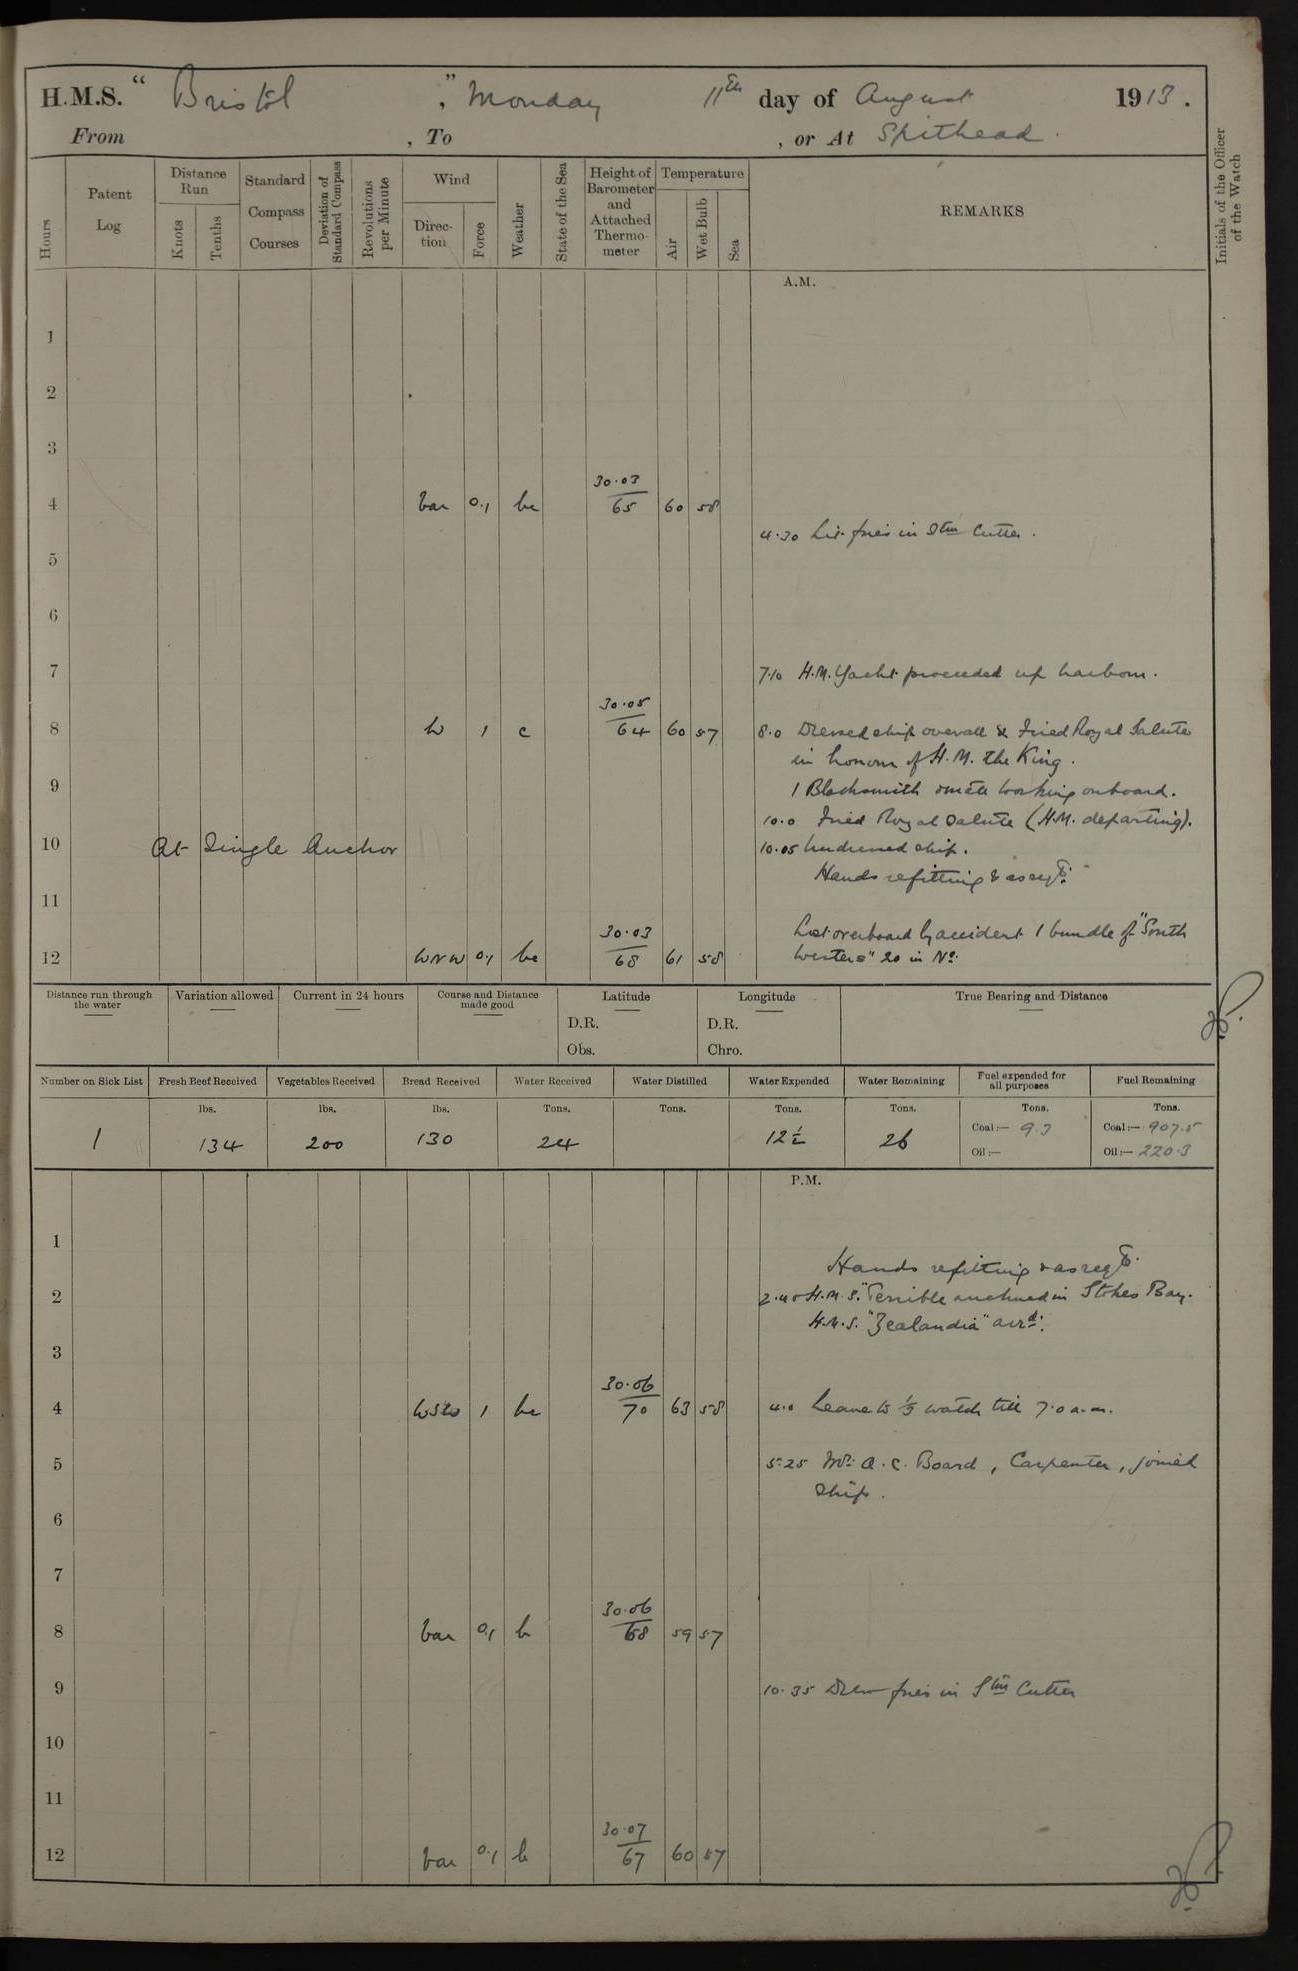 H.M.S. “ Bristol ,” Monday 11th day of August 1913.
From , To , or At Spithead.
Hours
Patent Log
Distance Run
Knots
Tenths
Standard Compass Courses
Deviation of Standard Compass
Revolutions per Minute
Wind
Direc-tion
Force
Weather
State of the Sea
Height of Barometer and Attached Thermo-meter
Temperature
Air
Wet Bulb
Sea
REMARKS
Initials of the Officer of the Watch
A.M.
1
2
3
30.03
4 var 0.1 bc 65 60 58
4.30 Lit fires in Stm Cutter.
5
6
7 7.10 H.M. Yacht proceeded up harbour.
30.05
8 W 1 c 64 60 57 8.0 Dressed ship overall & Fired Royal Salute
in honour of H.M. the King.
9 1 Blacksmith & mate working onboard.
10.0 Fired Royal Salute (H.M. departing).
10 At Single Anchor 10.05 Undressed ship.
Hands refitting & as reqd.
11
30.03 Lost overboard by accident 1 bundle of "South
12 WNW 0.1 bc 68 61 58 Westers" 20 in No.
Distance run through the water
Variation allowed
Current in 24 hours
Course and Distance made good
Latitude
D.R.
Obs.
Longitude
D.R.
Chro.
True Bearing and Distance
Number on Sick List
Fresh Beef Received
Vegetables Received
Bread Received
Water Received
Water Distilled
Water Expended
Water Remaining
Fuel expended for all purposes
Fuel Remaining
lbs. lbs. lbs. Tons. Tons. Tons. Tons. Tons. Tons.
1 134 200 130 24 12½ 26 Coal:— 9.3 Coal:— 907.5
Oil:— Oil:— 220.3
P.M.
1
Hands refitting & as reqd.
2 2.40 H.M.S. "Terrible anchored in Stokes Bay.
H.M.S. "Zealandia" arrd.
3
30.06
4 WSW 1 bc 70 63 58 4.0 Leave to ⅓ watch till 7.0 a.m.
5 5.25 Mr. A.C. Board, Carpenter, joined
ship.
6
7
30.06
8 var 0.1 b 68 59 57
9 10.35 Drew fires in Stm Cutter
10
11
30.07
12 var 0.1 b 67 60 57